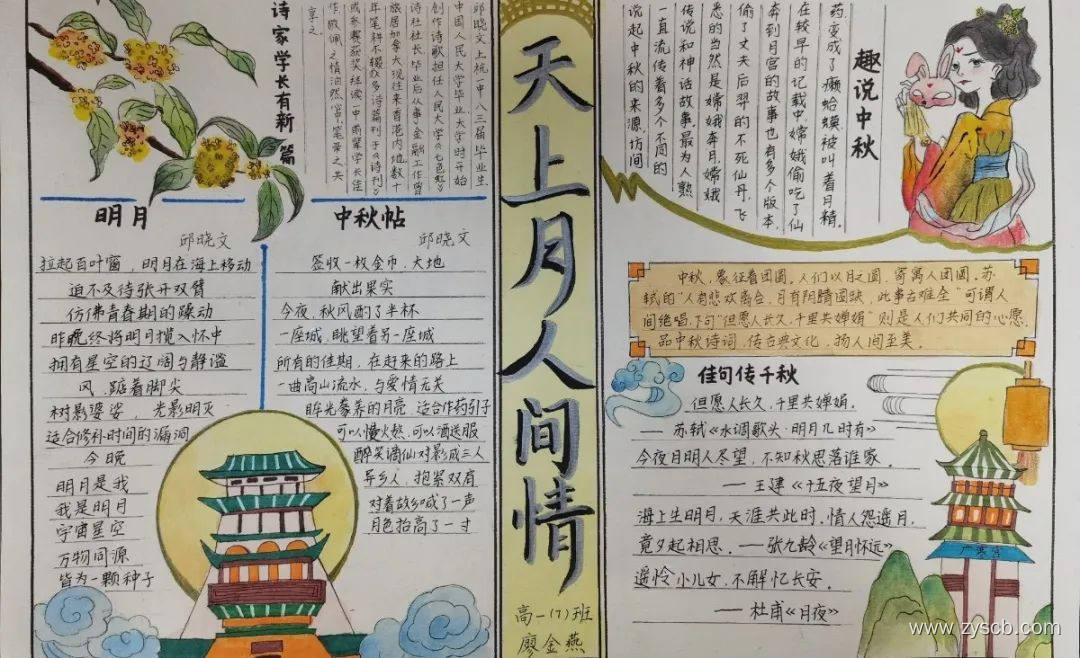 天上月人间情
高一(7)班
廖金燕
诗家学长有新篇
邱晓文上杭一中八三届毕业生,
中国人民大学毕业大学时开始
创作诗歌担任人民大学《七色虹》
诗社社长毕业后从事金融工作曾
旅居加拿大现往来香港内地数十
年笔耕不辍多诗篇刊于《诗刊》
或参赛获奖经读一中前辈学长佳
作敬佩之情油然笔录之共
享之
明月
邱晓文
拉起百叶窗，明月在海上移动
迫不及待张开双臂
仿佛青春期的躁动
昨晚终将明月揽入怀中
拥有星空的辽阔与静谧
风、踮着脚尖
树影婆娑，光影明灭
适合修补时间的漏洞
今晚
明月是我
我是明月
宇宙星空
万物同源
皆为一颗种子
中秋帖
邱晓文
签收一枚金币、大地
献出果实
今夜、秋风酌了半杯
一座城、眺望着另一座城
所有的佳期，在赶来的路上
一曲高山流水，与爱情无关
眸光豢养的月亮，适合作药引子
可以慢火熬、可以酒送服
醉笑谪仙对影成三人
异乡人，抱紧双肩
对着故乡喊了一声
月色抬高了一寸
趣说中秋
说起中秋的来源,坊间
一直流传着多个不同的
传说和神话故事。最为人熟
悉的当然是嫦娥奔月。嫦娥
偷了丈夫后羿的不死仙丹,飞
奔到月宫的故事也有多个版本.
在较早的记载中,嫦娥偷吃了仙
药,变成了癞蛤蟆,被叫着月精。
中秋，象征着团圆。人们以月之圆，寄寓人团圆。苏
轼的"人有悲欢离合，月有阴晴圆缺，此事古难全"可谓人
间绝唱,下句"但愿人长久,千里共婵娟"则是人们共同的心愿.
品中秋诗词，传古典文化，扬人间至美。
佳句传千秋
但愿人长久，千里共婵娟.
—苏轼《水调歌头·明月几时有》
今夜月明人尽望，不知秋思落谁家。
—王建《十五夜望月》
海上生明月，天涯共此时，情人怨遥月，
竟夕起相思。—张九龄《望月怀远》
遥怜小儿女，不解忆长安。
—杜甫《月夜》
广寒宫
www.zyscb.com